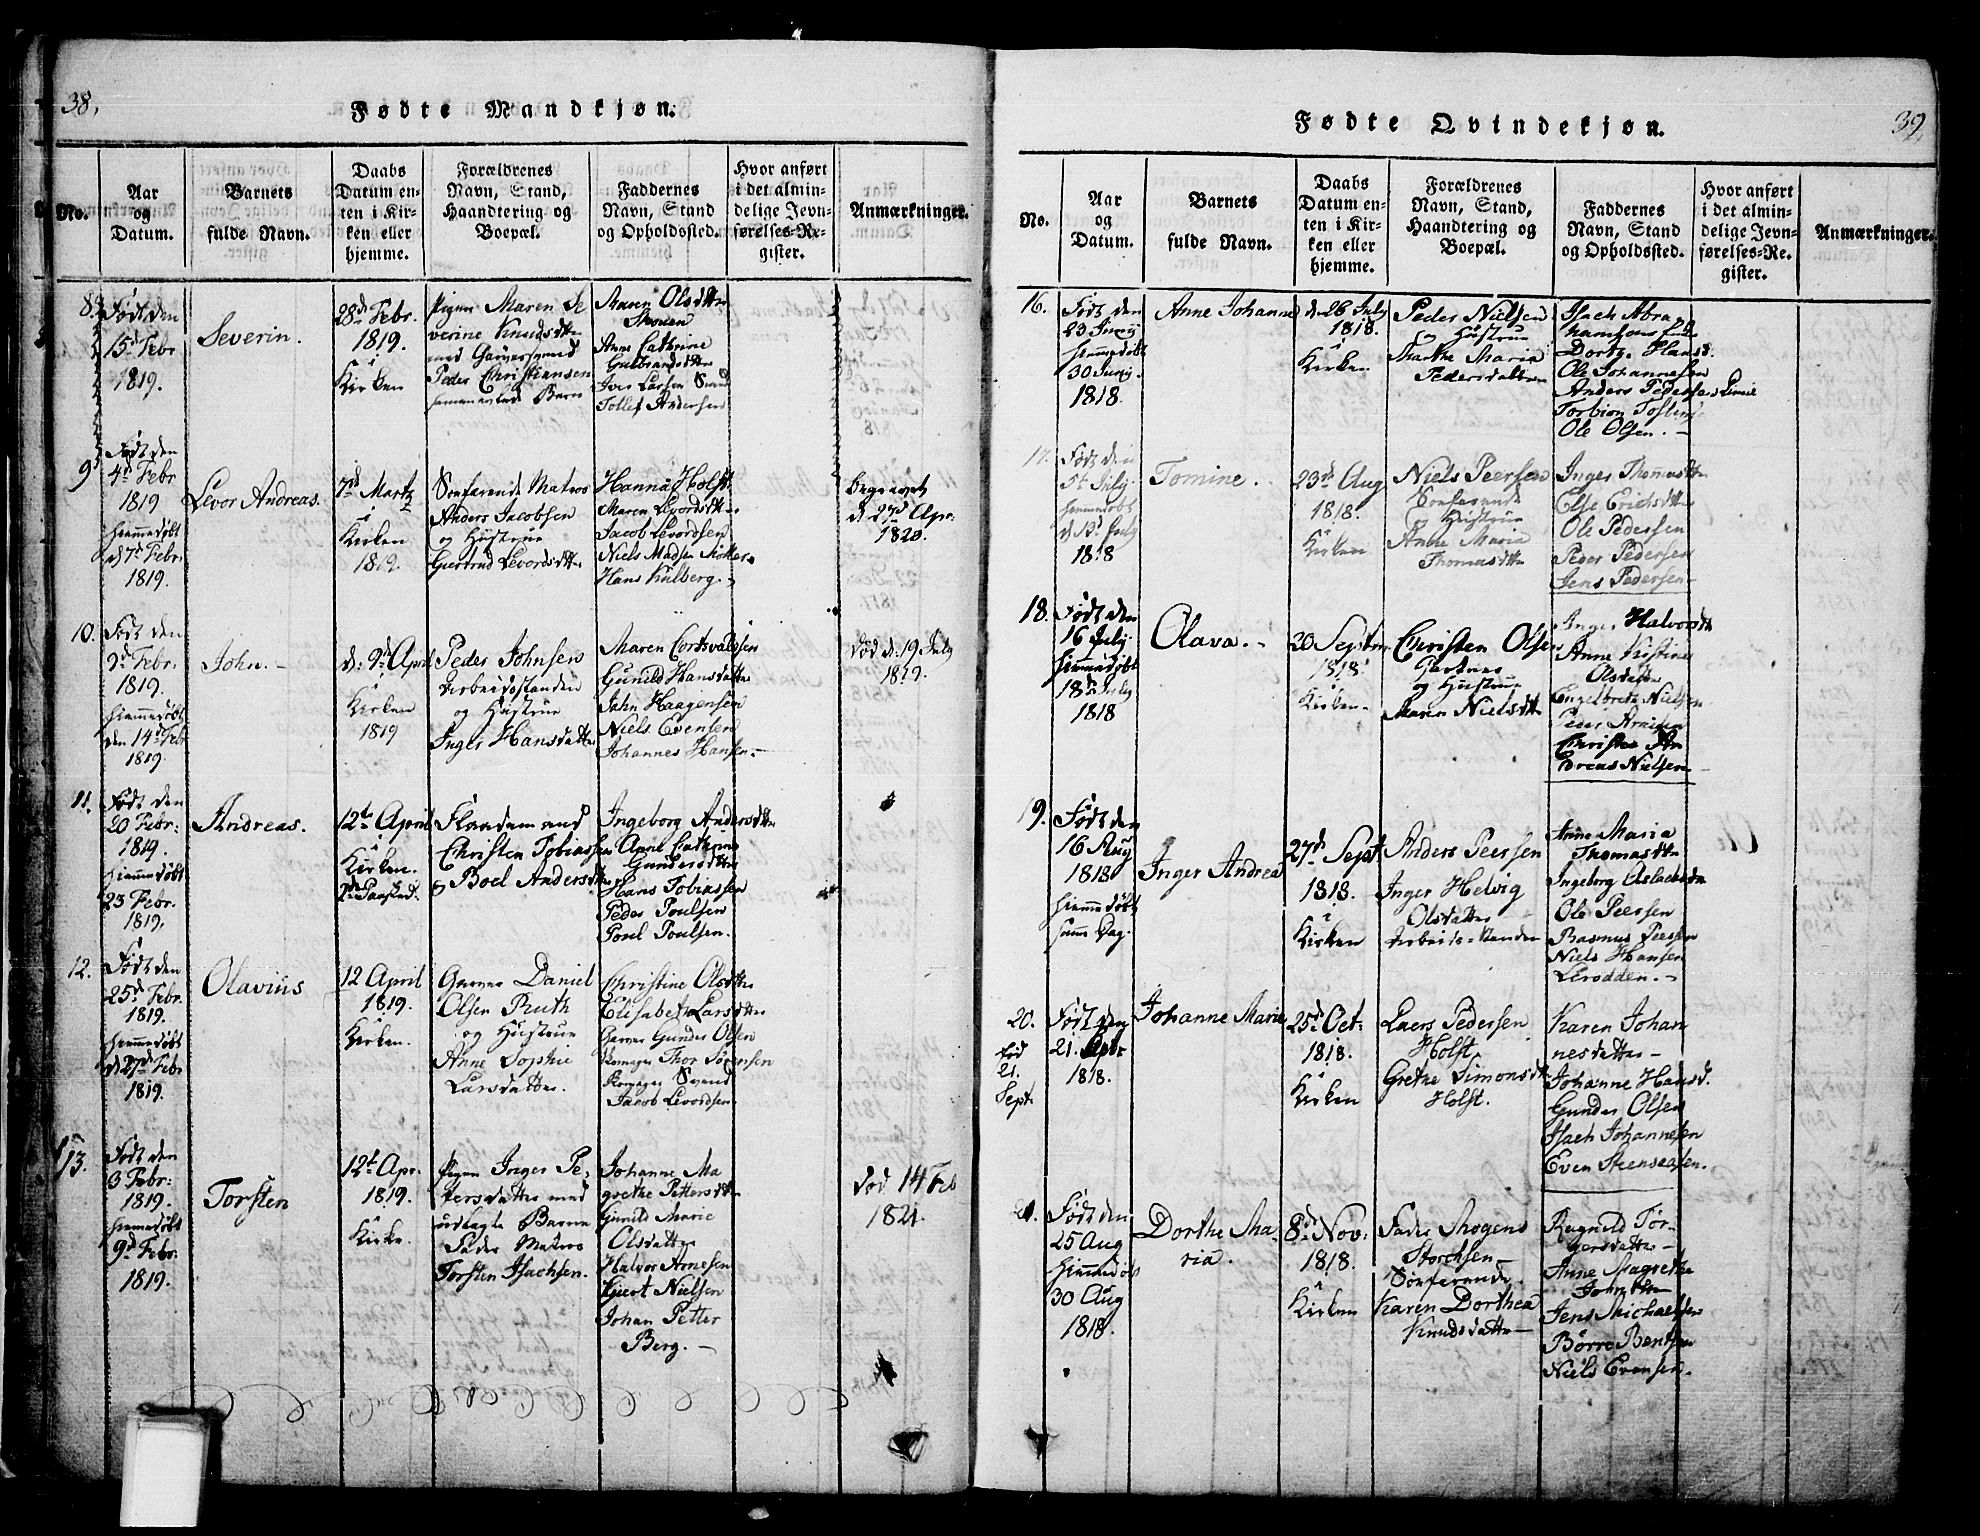 38.
Fødte Mandkjøn.
No.
Aar
og
Datum.
Barnets
fulde Navn.
Daabs
Datum en-
ten i Kir-
ken eller
hjemme.
Forældrenes
Navn, Stand,
Haandtering og
Boepæl.
Faddernes
Navn, Stand
og Opholdssted.
Hvor anført
i det almin-
delige Jevn-
førelses-Re-
gister.
Anmærkninger.
8.
Født den
15d Febr
1819.
Severin.
28d Febr.
1819.
i
Kirken
Pigen Maren Se
verine Knudsdtr
med Garversvend
Peder Christiansen
Barn
Maren Olsdtr
Anne Cathrine
Gulbrandsdtr
Iver Larsen Svend
Tollef Andersen
9
Født den
4d Febr
1819
hiemmedøbt
d 7d Febr.
1819.
Levor Andreas.
7d Martz
i
Kirken
1819.
Søefarende Matros
Anders Jacobsen
og Hustrue
Giertrud Levordsdtr
Hanna Holst
Maren Levordsdtr
Jacob Levordsen
Niels Madsen
Hans Kulberg.
begravet
d. 27d Apr:
1820.
10.
Født den
9d Febr.
1819.
hiemmedøbt
den 14d Febr
1819.
John.
d: 9d April
i
Kirken
1819
Peder Johnsen
Arbeidsstanden
og Hustrue
Inger Hansdatter
Maren
Gunild Hansdatter
John Haagensen
Niels Evensen
Johannes Hansen.
død d. 19 July
1819.
11.
Født den
20 Febr:
1819.
hiemmedøbt
23 Febr.
1819.
Andreas.
12te April
i
Kirken.
2d Paasked.
Christen Tobiassen
Boel Andersdtr
Ingeborg Andersdtr
Anne Cathrine
Gundersdtr
Hans Tobiassen
Peder Poulsen
Poul Poulsen.
12.
Født den
25d Febr.
1819.
hiemmedøbt
d 27d Febr
1819.
Olavius
12 April
1819.
i
Kirken.
Garver Daniel
Olsen Ruth
og Hustrue
Anne Sophie
Larsdatter.
Christine Olsdtr
Elisabeth Larsdtr
Garver Gunder Olsen
Thor Sørensen
Svend
Jacob Levordsen.
13.
Født den
3 Febr:
1819.
hiemmedøbt
9d Febr.
1819.
Torsten
12t Apr.
1819.
i
Kirke.
Pigen Inger Pe-
tersdatter med
udlagte Barne
Fader Matros
Torsten Isachsen.
Johanne Ma
grethe Pettersdtr
Gunild Marie
Olsdatter
Halvor Arnesen
Giert Nielsen
Johan Petter
Berg.
død 14 Feb
1821.
39
Fødte Qvindekjøn.
No.
Aar
og
Datum.
Barnets
fulde Navn.
Daabs
Datum en-
ten i Kir-
ken eller
hjemme.
Forældrenes
Navn, Stand,
Haandtering og
Boepæl.
Faddernes
Navn, Stand
og Opholdssted.
Hvor anført
i det almin-
delige Jevn-
førelses-Re-
gister.
Anmærkninger.
16.
Født den
23 Juny
hiemmedøbt
30 Juny
1818.
Anne Johanne
d. 26 July
1818.
i
Kirken
Peder Nielsen
og Hustrue
Marthe Maria
Pedersdatter
Isach Abra
hamsens
Dorte Hansd.
Ole Johannesen
Anders Pedersen
Torbion
Ole Olsen.
17.
Født den
5t July
hiemmedøbt
d 13d July
1818
Tomine.
23d Aug
1818.
i
Kirken
Niels Peersen
Søefarende
og Hustrue
Anne Maria
Thomasdtr
Inger Thomasdtr
Else Erichsdtr
Ole Pedersen
Peder Pedersen
Jens Pedersen
18.
Født den
16 July
hiemmedøbt
18d July
1818
Olava.
20 Septr
1818.
i
Kirken.
Christen Olsen
Gartner
og Hustrue
Maren Nielsdtr
Inger Halvorsdtr
Anne Kistine
Olsdatter
Engelbreth Nielsen
Peder Arnesen
Christen An
dreas Nielsen
19.
Født den
16 Aug
1818
hiemmedøbt
samme Dag.
Inger Andrea
27d Sept
1818.
i
Kirken
Anders Peersen
Inger Helvig
Olsdatter
Arbeids-Standen
Anne Maria
Thomasdtr
Ingeborg Aslachsdtr
Ole Peersen
Rasmus Peersen
Niels Hansen
Lerodden.
20.
fød
21.
Sept.
Født den
21. Apr
1818.
Johanne Marie
25d Oct.
1818.
i
Kirken
Laers Pedersen
Holst
Grethe Simonsdtr
Holst.
Karen Johan
nesdatter
Johanne Hansd.
Gunder Olsen
Isach Johannesen
Even Steensesen.
21.
Født den
25 Aug
hiemmedøbt
30 Aug
1818.
Dorthe Ma-
ria.
8d Nov:
1818.
i
Kirken
Fader Mogens
Storchsen
Søefarende.
Karen Dorthea
Knudsdatter
Ragnild Tor-
gersdatter
Anne Magrethe
Johnsdtr
Jens Michaelsen
Børre Bentsen
Niels Evensen.